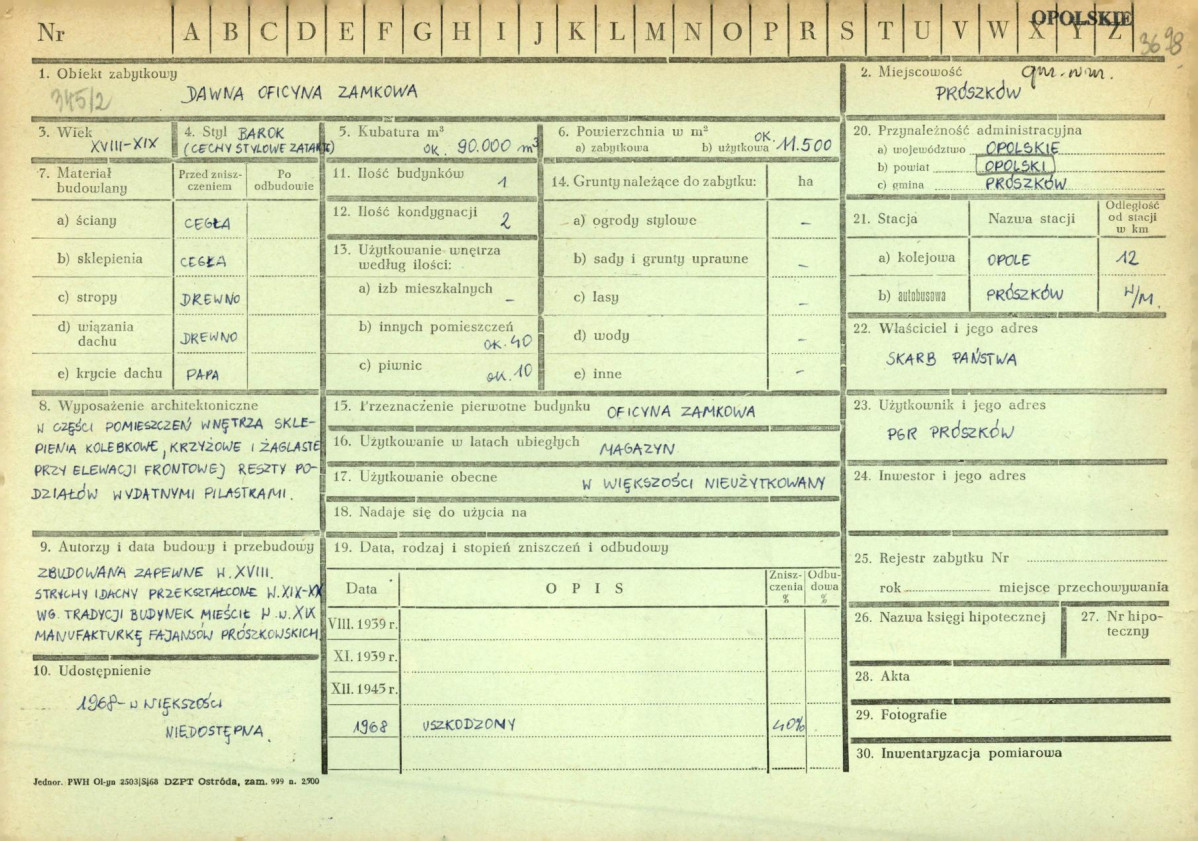 OPOLSKIE
Nr A B C D E F G H I J K L M N O P R S T U V W X Y Z
3698
1. Obiekt zabytkowy
345/2
DAWNA OFICYNA ZAMKOWA
2. Miejscowość gm. w m.
PRÓSZKÓW
3. Wiek
XVIII-XIX
4. Styl BAROK
(CECHY STYLOWE ZATARTE)
5. Kubatura m³
OK. 90.000 m³
6. Powierzchnia w m²
a) zabytkowa b) użytkowa OK. 11.500
7. Materiał budowlany
Przed zniszczeniem
Po odbudowie
a) ściany CEGŁA
b) sklepienia CEGŁA
c) stropy DREWNO
d) wiązania dachu DREWNO
e) krycie dachu PAPA
11. Ilość budynków 1
12. Ilość kondygnacji 2
13. Użytkowanie wnętrza
według ilości:
a) izb mieszkalnych –
b) innych pomieszczeń
OK. 40
c) piwnic OK. 10
14. Grunty należące do zabytku: ha
a) ogrody stylowe –
b) sady i grunty uprawne –
c) lasy –
d) wody –
e) inne –
20. Przynależność administracyjna
a) województwo OPOLSKIE
b) powiat OPOLSKI
c) gmina PRÓSZKÓW
21. Stacja Nazwa stacji Odległość od stacji w km
a) kolejowa OPOLE 12
b) autobusowa PRÓSZKÓW W/M.
22. Właściciel i jego adres
SKARB PAŃSTWA
8. Wyposażenie architektoniczne
W CZĘŚCI POMIESZCZEŃ WNĘTRZA SKLE-
PIENIA KOLEBKOWE, KRZYŻOWE I ŻAGLASTE
PRZY ELEWACJI FRONTOWEJ RESZTY PO-
DZIAŁÓW WYDATNYMI PILASTRAMI.
15. Przeznaczenie pierwotne budynku OFICYNA ZAMKOWA
16. Użytkowanie w latach ubiegłych MAGAZYN
17. Użytkowanie obecne W WIĘKSZOŚCI NIEUŻYTKOWANY
18. Nadaje się do użycia na
23. Użytkownik i jego adres
PGR PRÓSZKÓW
24. Inwestor i jego adres
9. Autorzy i data budowy i przebudowy
ZBUDOWANA ZAPEWNE W. XVIII.
STRYCHY I DACHY PRZEKSZTAŁCONE W. XIX-XX
WG. TRADYCJI BUDYNEK MIEŚCIŁ W W. XIX
MANUFAKTURKĘ FAJANSÓW PRÓSZKOWSKICH
10. Udostępnienie
1968 - W WIĘKSZOŚCI
NIEDOSTĘPNA.
19. Data, rodzaj i stopień zniszczeń i odbudowy
Data OPIS Zniszczenia % Odbudowa %
VIII. 1939 r.
XI. 1939 r.
XII. 1945 r.
1968 USZKODZONY 40%
25. Rejestr zabytku Nr
rok miejsce przechowywania
26. Nazwa księgi hipotecznej
27. Nr hipoteczny
28. Akta
29. Fotografie
30. Inwentaryzacja pomiarowa
Jednor. PWH Ol-yn 2503|S|68 DZPT Ostróda, zam. 999 n. 2500